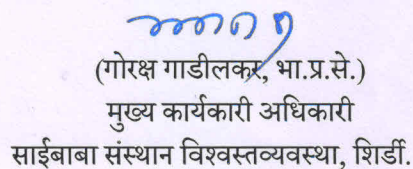 (गोरक्ष गाडीलकर, भा.प्र.से.)
मुख्य कार्यकारी अधिकारी
साईबाबा संस्थान विश्वस्तव्यवस्था, शिर्डी.